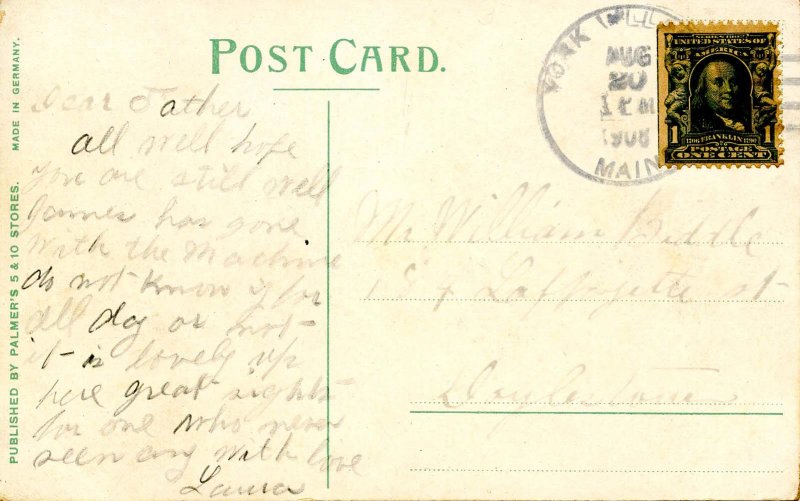 POST CARD.
MADE IN GERMANY.
PUBLISHED BY PALMER'S 5 & 10 STORES.
YORK VILL
AUG
20
1908
MAIN
SERIES 1902
UNITED STATES OF
AMERICA
1 1706 FRANKLIN 1790 1
POSTAGE
ONE CENT
Dear Father
all well hope
you are still well
James has gone
with the Machine
do not know if for
all day or not
it is lovely up
here great sights
for one who never
seen any with love
Laura
Mr. William Biddle
Laffayette st
Doylestown